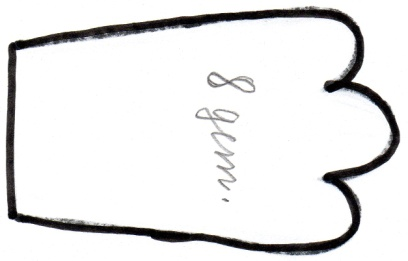 8 gem.